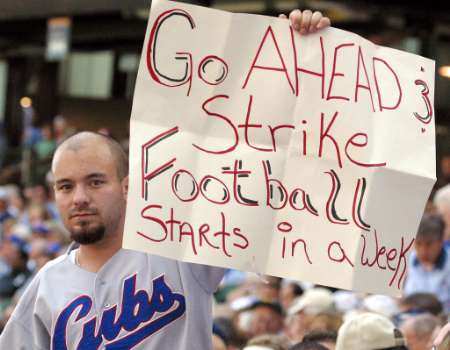 Go AHEAD &
Strike
Football
Starts in a Week
Cubs